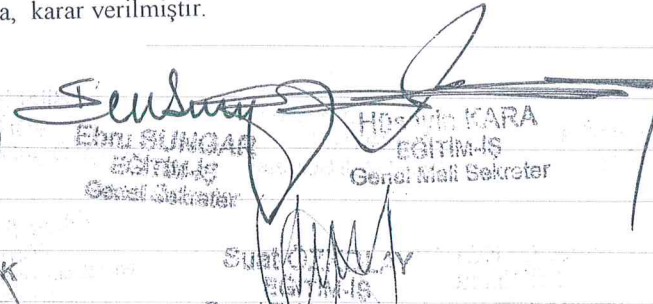 a, karar verilmiştir.
Ebru SUNGAR
EĞİTİM-İŞ
Genel Sekreter
Hüseyin KARA
EĞİTİM-İŞ
Genel Mali Sekreter
K
Suat
EĞİTİM-İŞ